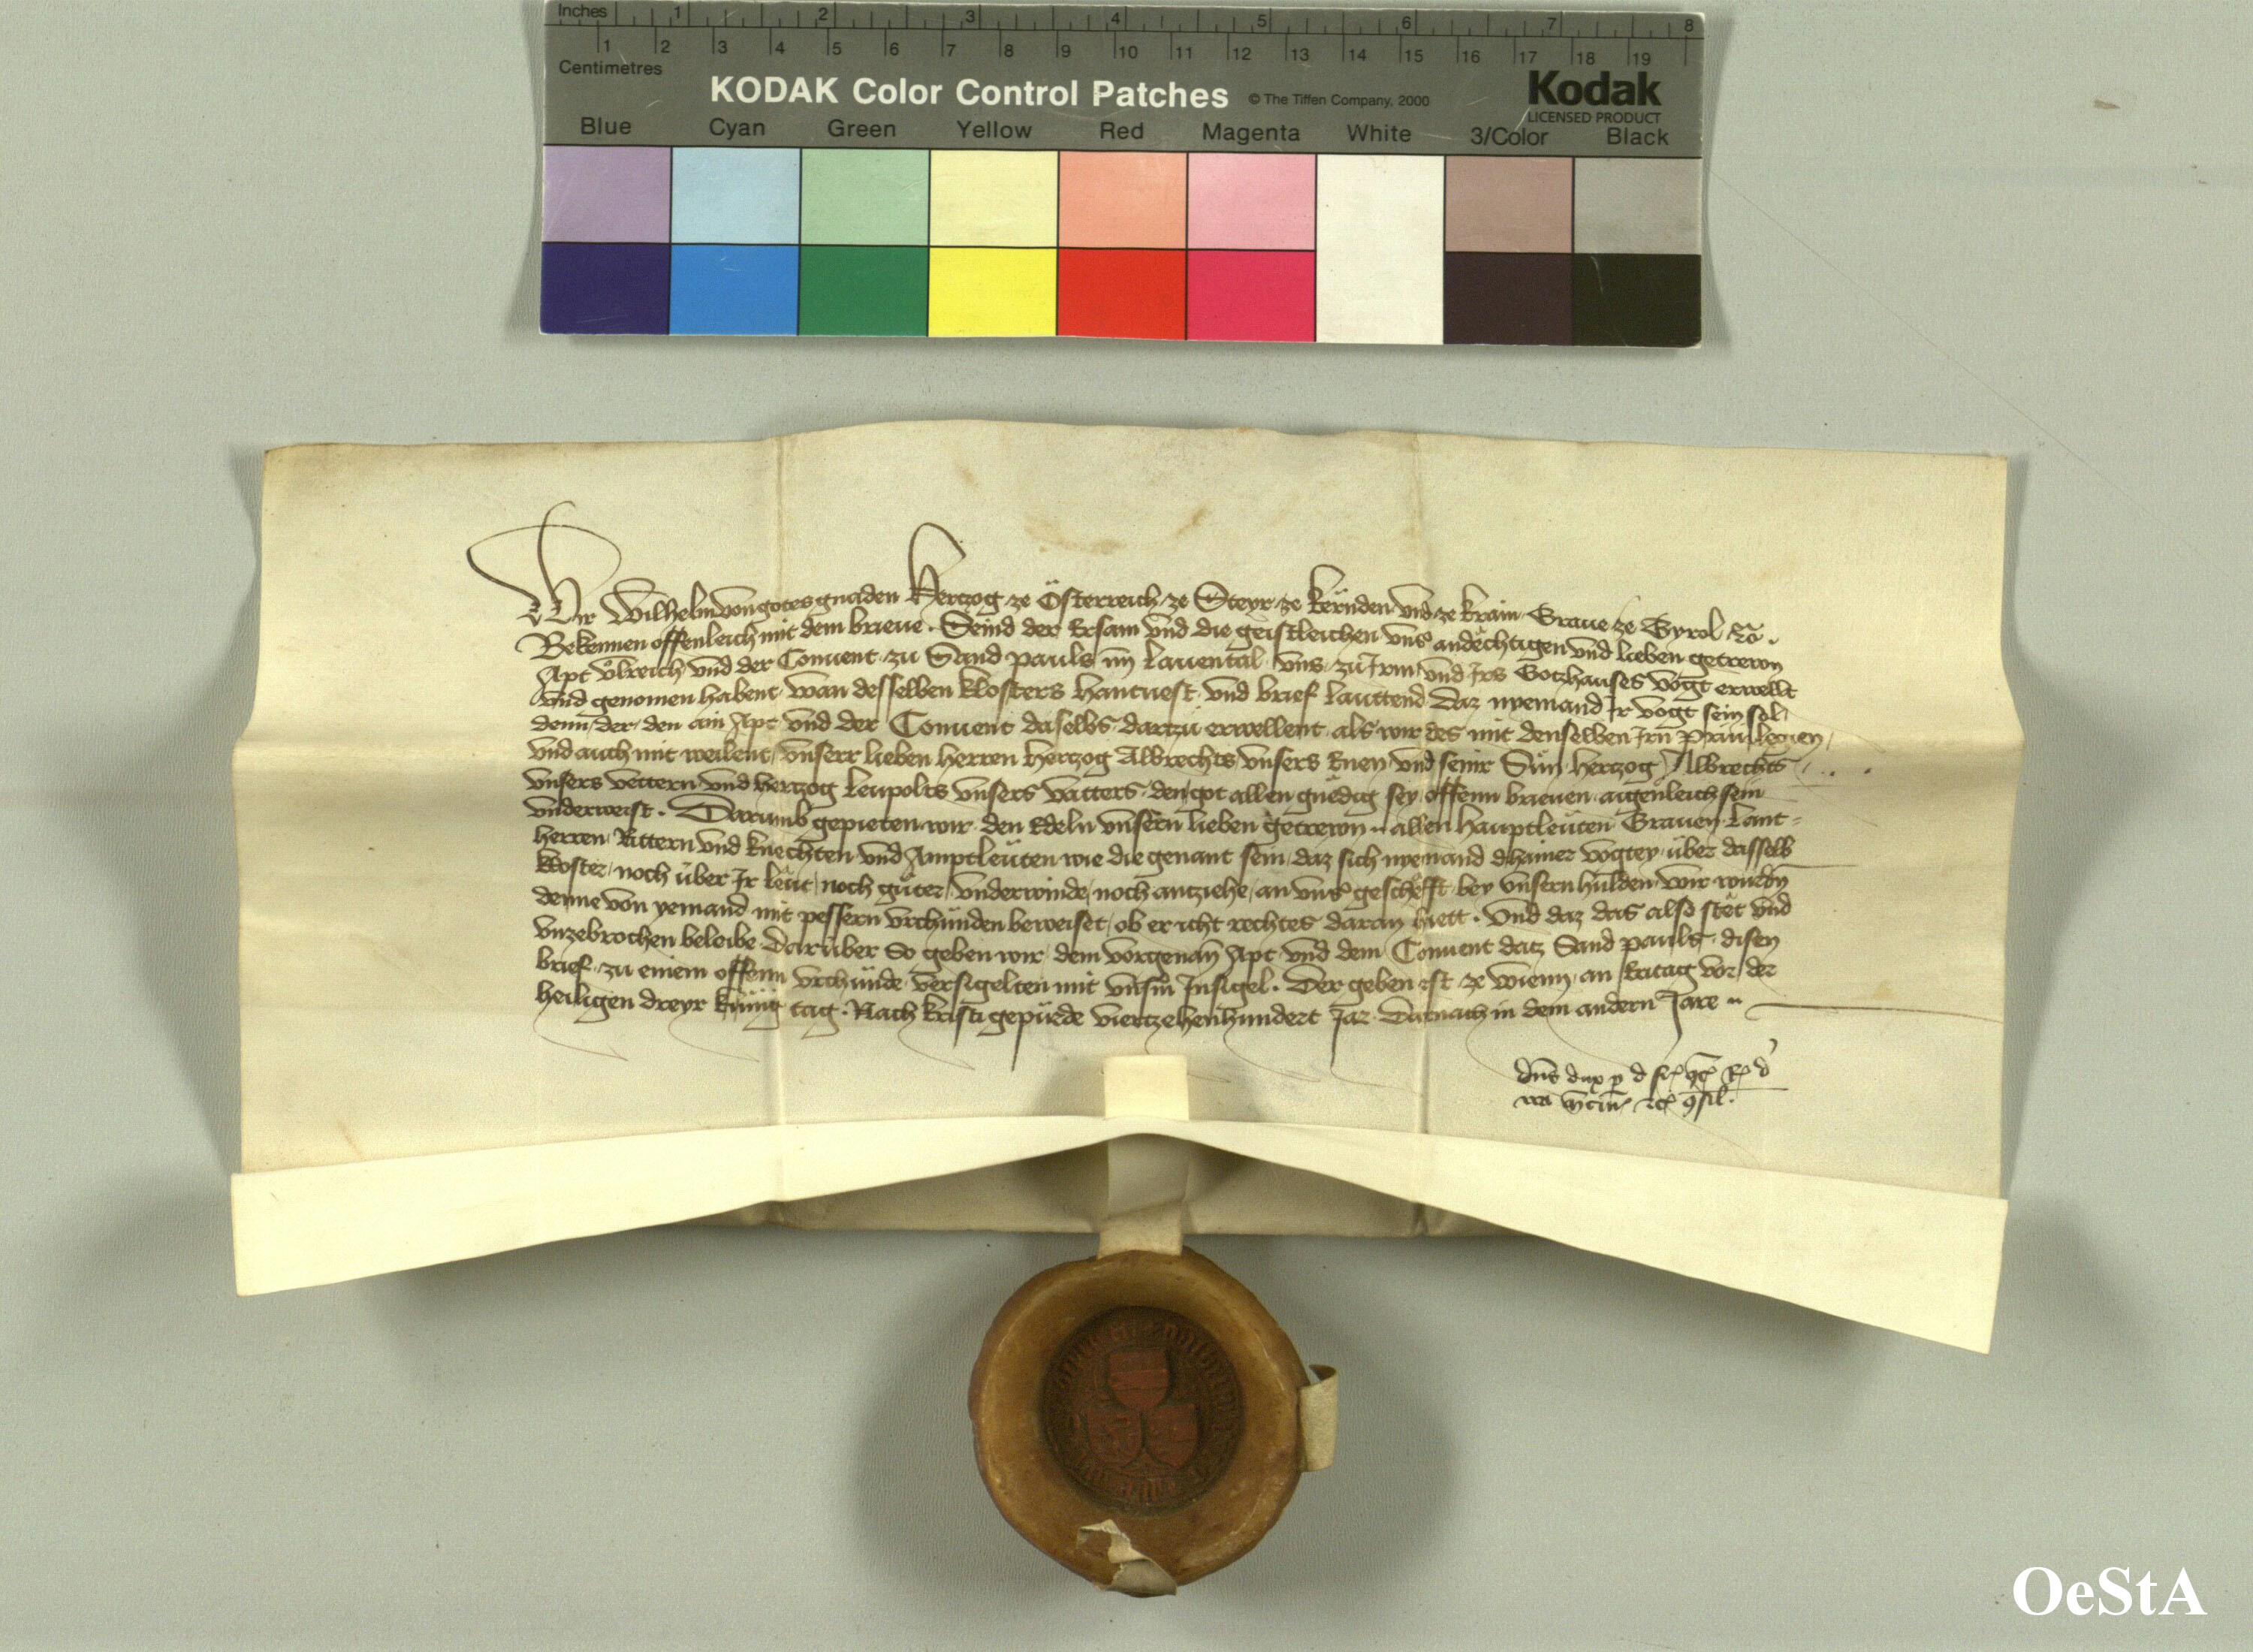 Inches 1 2 3 4 5 6 7 8
1 2 3 4 5 6 7 8 9 10 11 12 13 14 15 16 17 18 19
Centimetres
KODAK Color Control Patches © The Tiffen Company, 2000 Kodak
LICENSED PRODUCT
Blue Cyan Green Yellow Red Magenta White 3/Color Black
Wir Wilhelm von gotes gnaden Hertzog ze Österreich ze Steyr ze kernden vnd ze krain Graue ze Tyrol etc.
Bekennen offenleich mit dem brieue. Seind der Ersam vnd die geistleichen vns andechtigen vnd lieben getrewn
Apt vlreich vnd der Conuent zu Sand pauls im lauental vns zu Irm vnd Irs Gotzhauses vogt erwellt
vnd genomen habent wan desselben klosters hantuest vnd brief lauttend daz nyemand Ir vogt sein sol
denn der den ain Apt vnd der Conuent daselbs dartzu erwellent als wir des mit denselben Irn priuilegien
vnd auch mit weilent vnserr lieben herren hertzog Albrechts vnsers Enen vnd seinr Sün hertzog Albrechts
vnsers vettern vnd hertzog leupolts vnsers vatters den got allen gnedig sey offenn brieuen augenleich sein
vnderweist. Darumb gepieten wir den Edeln vnsern lieben getrewn allen hauptleuten Grauen lant=
herren Rittern vnd knechten vnd Amptleuten wie die genant sein daz sich nyemand dhainer vogtey über dasselb
kloster noch über Ir leut noch güter vnderwinde noch antziehe an vns geschefft bey vnsern hulden wir wurdn
denne von yemand mit pessern vrchunden beweiset ob er icht rechtes daran hett. Vnd daz das also stet vnd
vnzebrochen beleibe Darüber So geben wir dem vorgenan Apt vnd dem Conuent datz Sand pauls disen
brief zu einem offenn vrchunde versigelten mit vnsm Insigel. Der geben ist ze wienn an Eritag vor der
heiligen dreyr künig tag. Nach kristi gepürde viertzehenhundert Jar Darnach in dem andern Jare
dns dux p d
OeStA